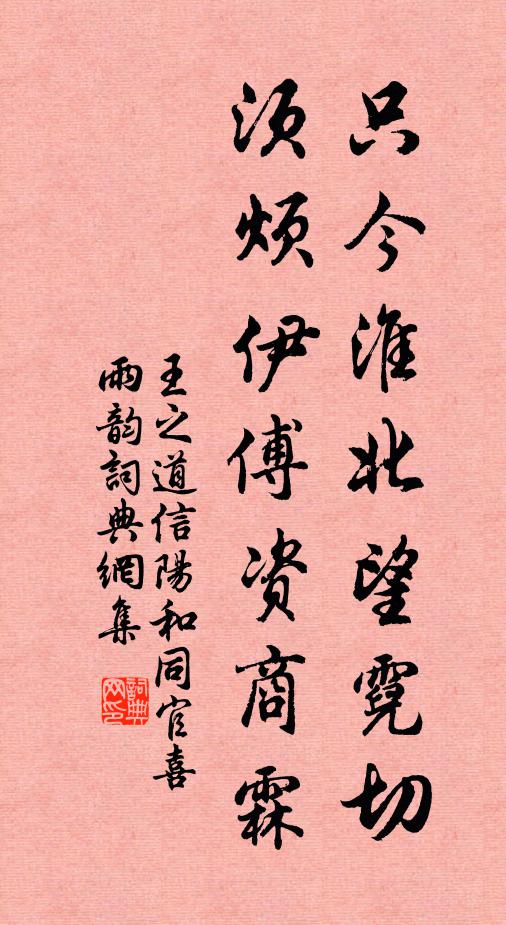 只今淮北望霓切
须烦伊傅资商霖
王之道信陽和同官喜
雨韵詞典網集
詞典网印